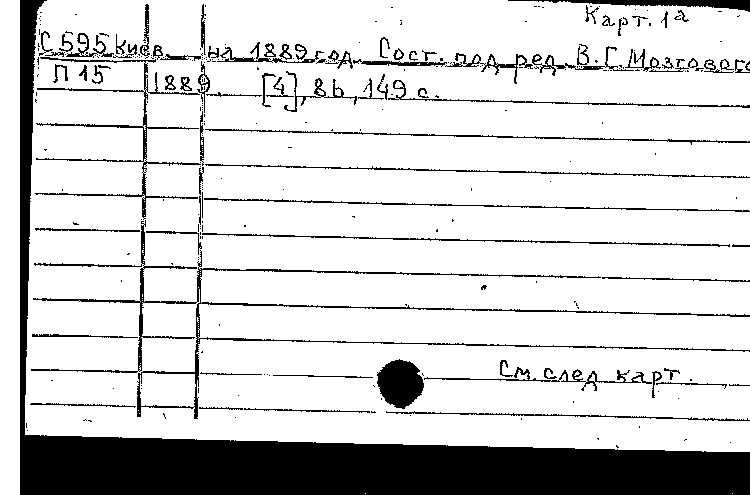 Карт. 1а
С 595 Киев. на 1889 год. Сост. под ред. В. Г. Мозгового
П 15 1889. [4], 86, 149 с.
См. след карт.